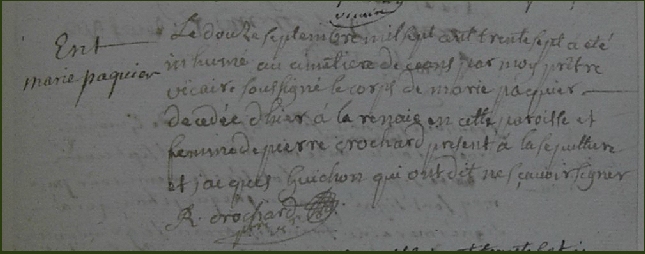 Ent
marie paquier
Le douze septembre mil sept cent trente sept a été
inhumé au cimetiere de ceans par moy prêtre
vicaire soussigné le corps de marie paquier
decedée d'hier à la renaie en cette paroisse et
femme de pierre crochard present à la sepulture
et jacques Guichon qui ont dit ne sçavoir signer
R. crochard